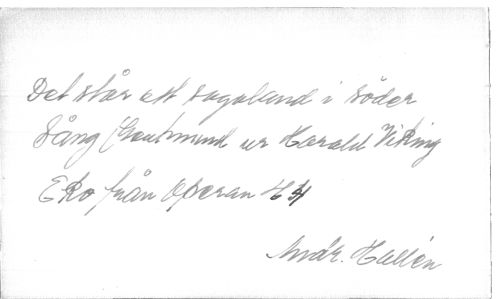 Det står ett sagoland i söder
Sång (Gudmund ur Harald Viking
Eko från Operan H 4
Andr. Hallén